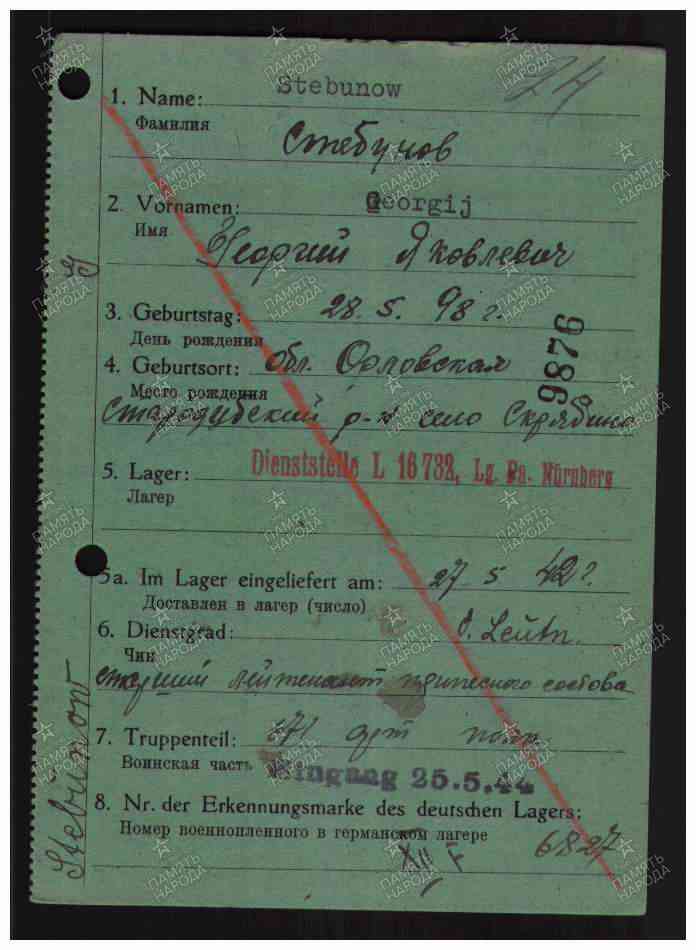 24
1. Name: Stebunow
Фамилия
Стебунов
2. Vornamen: Georgij
Имя
Георгий Яковлевич
3. Geburtstag: 28. 5. 98 г.
День рождения
4. Geburtsort: обл. Орловская
Место рождения
Стародубский р-н село Скрябино
9876
5. Lager: Dienststelle L 16 732, Lg. Pa. Nürnberg
Лагер
5a. Im Lager eingeliefert am: 27 5 42 г.
Доставлен в лагер (число)
6. Dienstgrad: O. Leutn.
Чин
лейтенант состава
7. Truppenteil: 671 арт полк
Воинская часть
Eingang 25.5.44
8. Nr. der Erkennungsmarke des deutschen Lagers:
Номер военнопленного в германском лагере
6827
XII F
Stebunow
ПАМЯТЬ НАРОДА